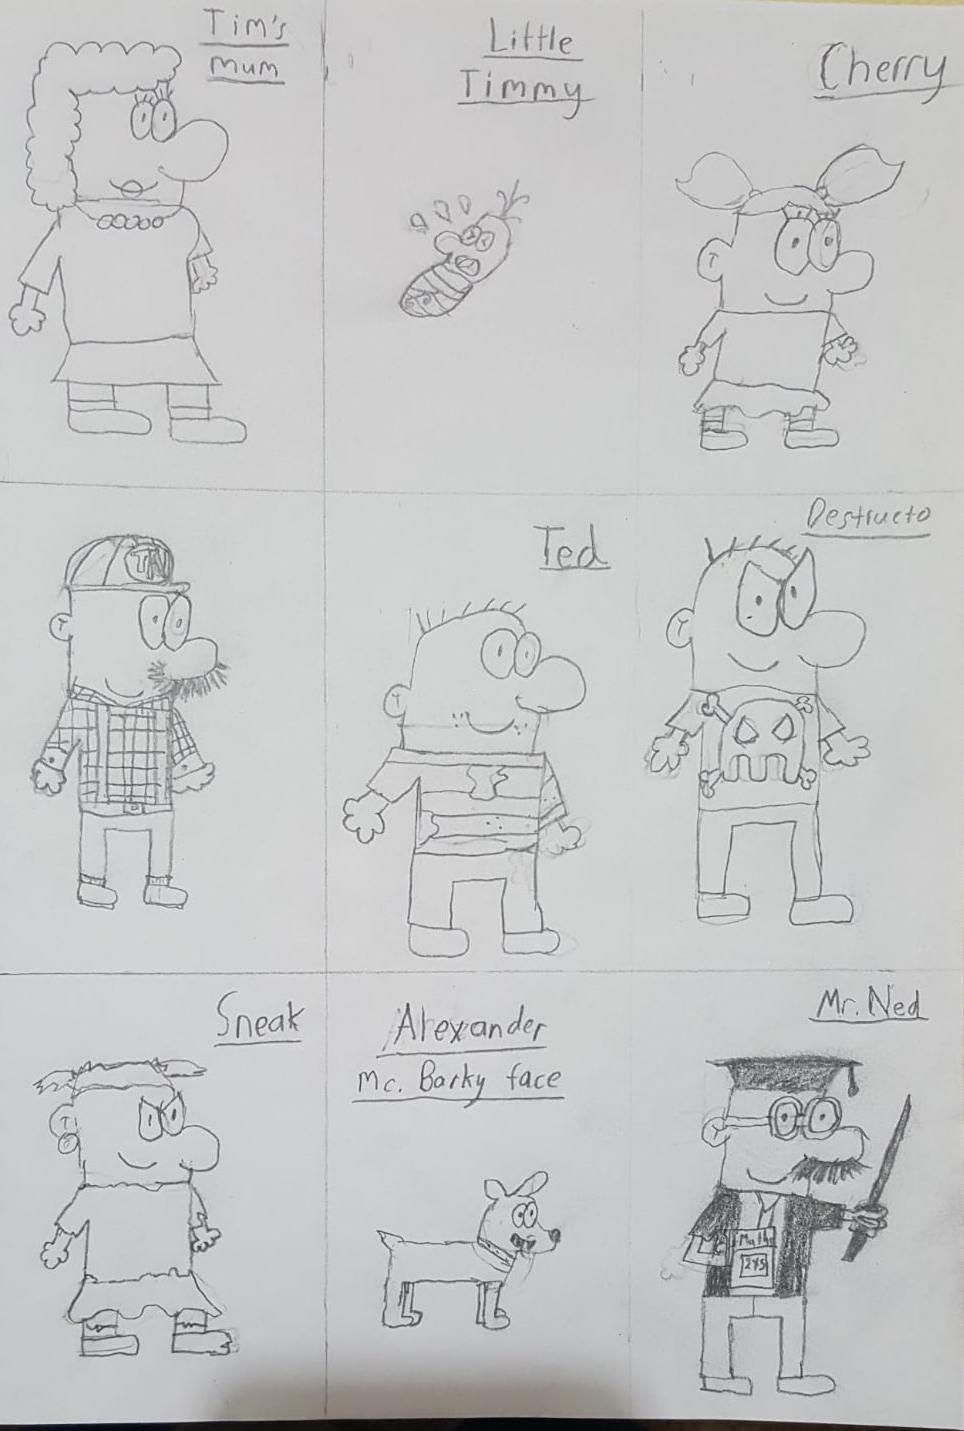 Tim's
mum
Little
Timmy
Cherry
TN
Ted
Destructo
Sneak
Alexander
Mc. Barky face
Mr. Ned
Maths